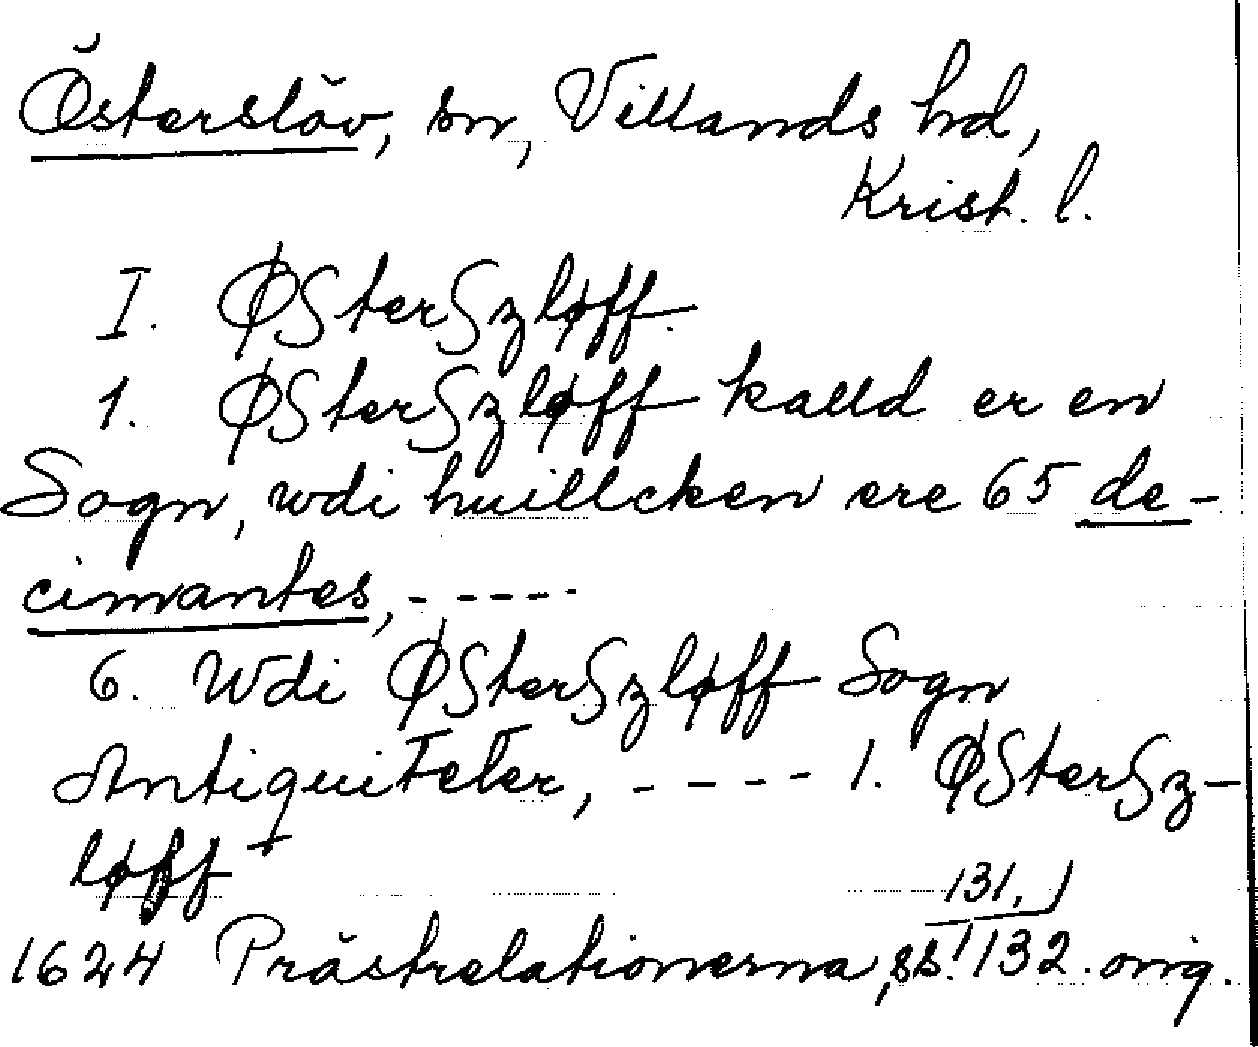 Österslöv, sn, Villands hd,
Krist. l.
I. ØSterSzløff.
1. ØSterSzløff kalld er en
Sogn, wdi huillcken ere 65 de-
cimantes, - - - - -
6. Wdi ØSterSzløff Sogn
Antiquiteter, - - - - 1. ØSterSz-
løff
131,
1624 Prästrelationerna, ss. 132. orig.